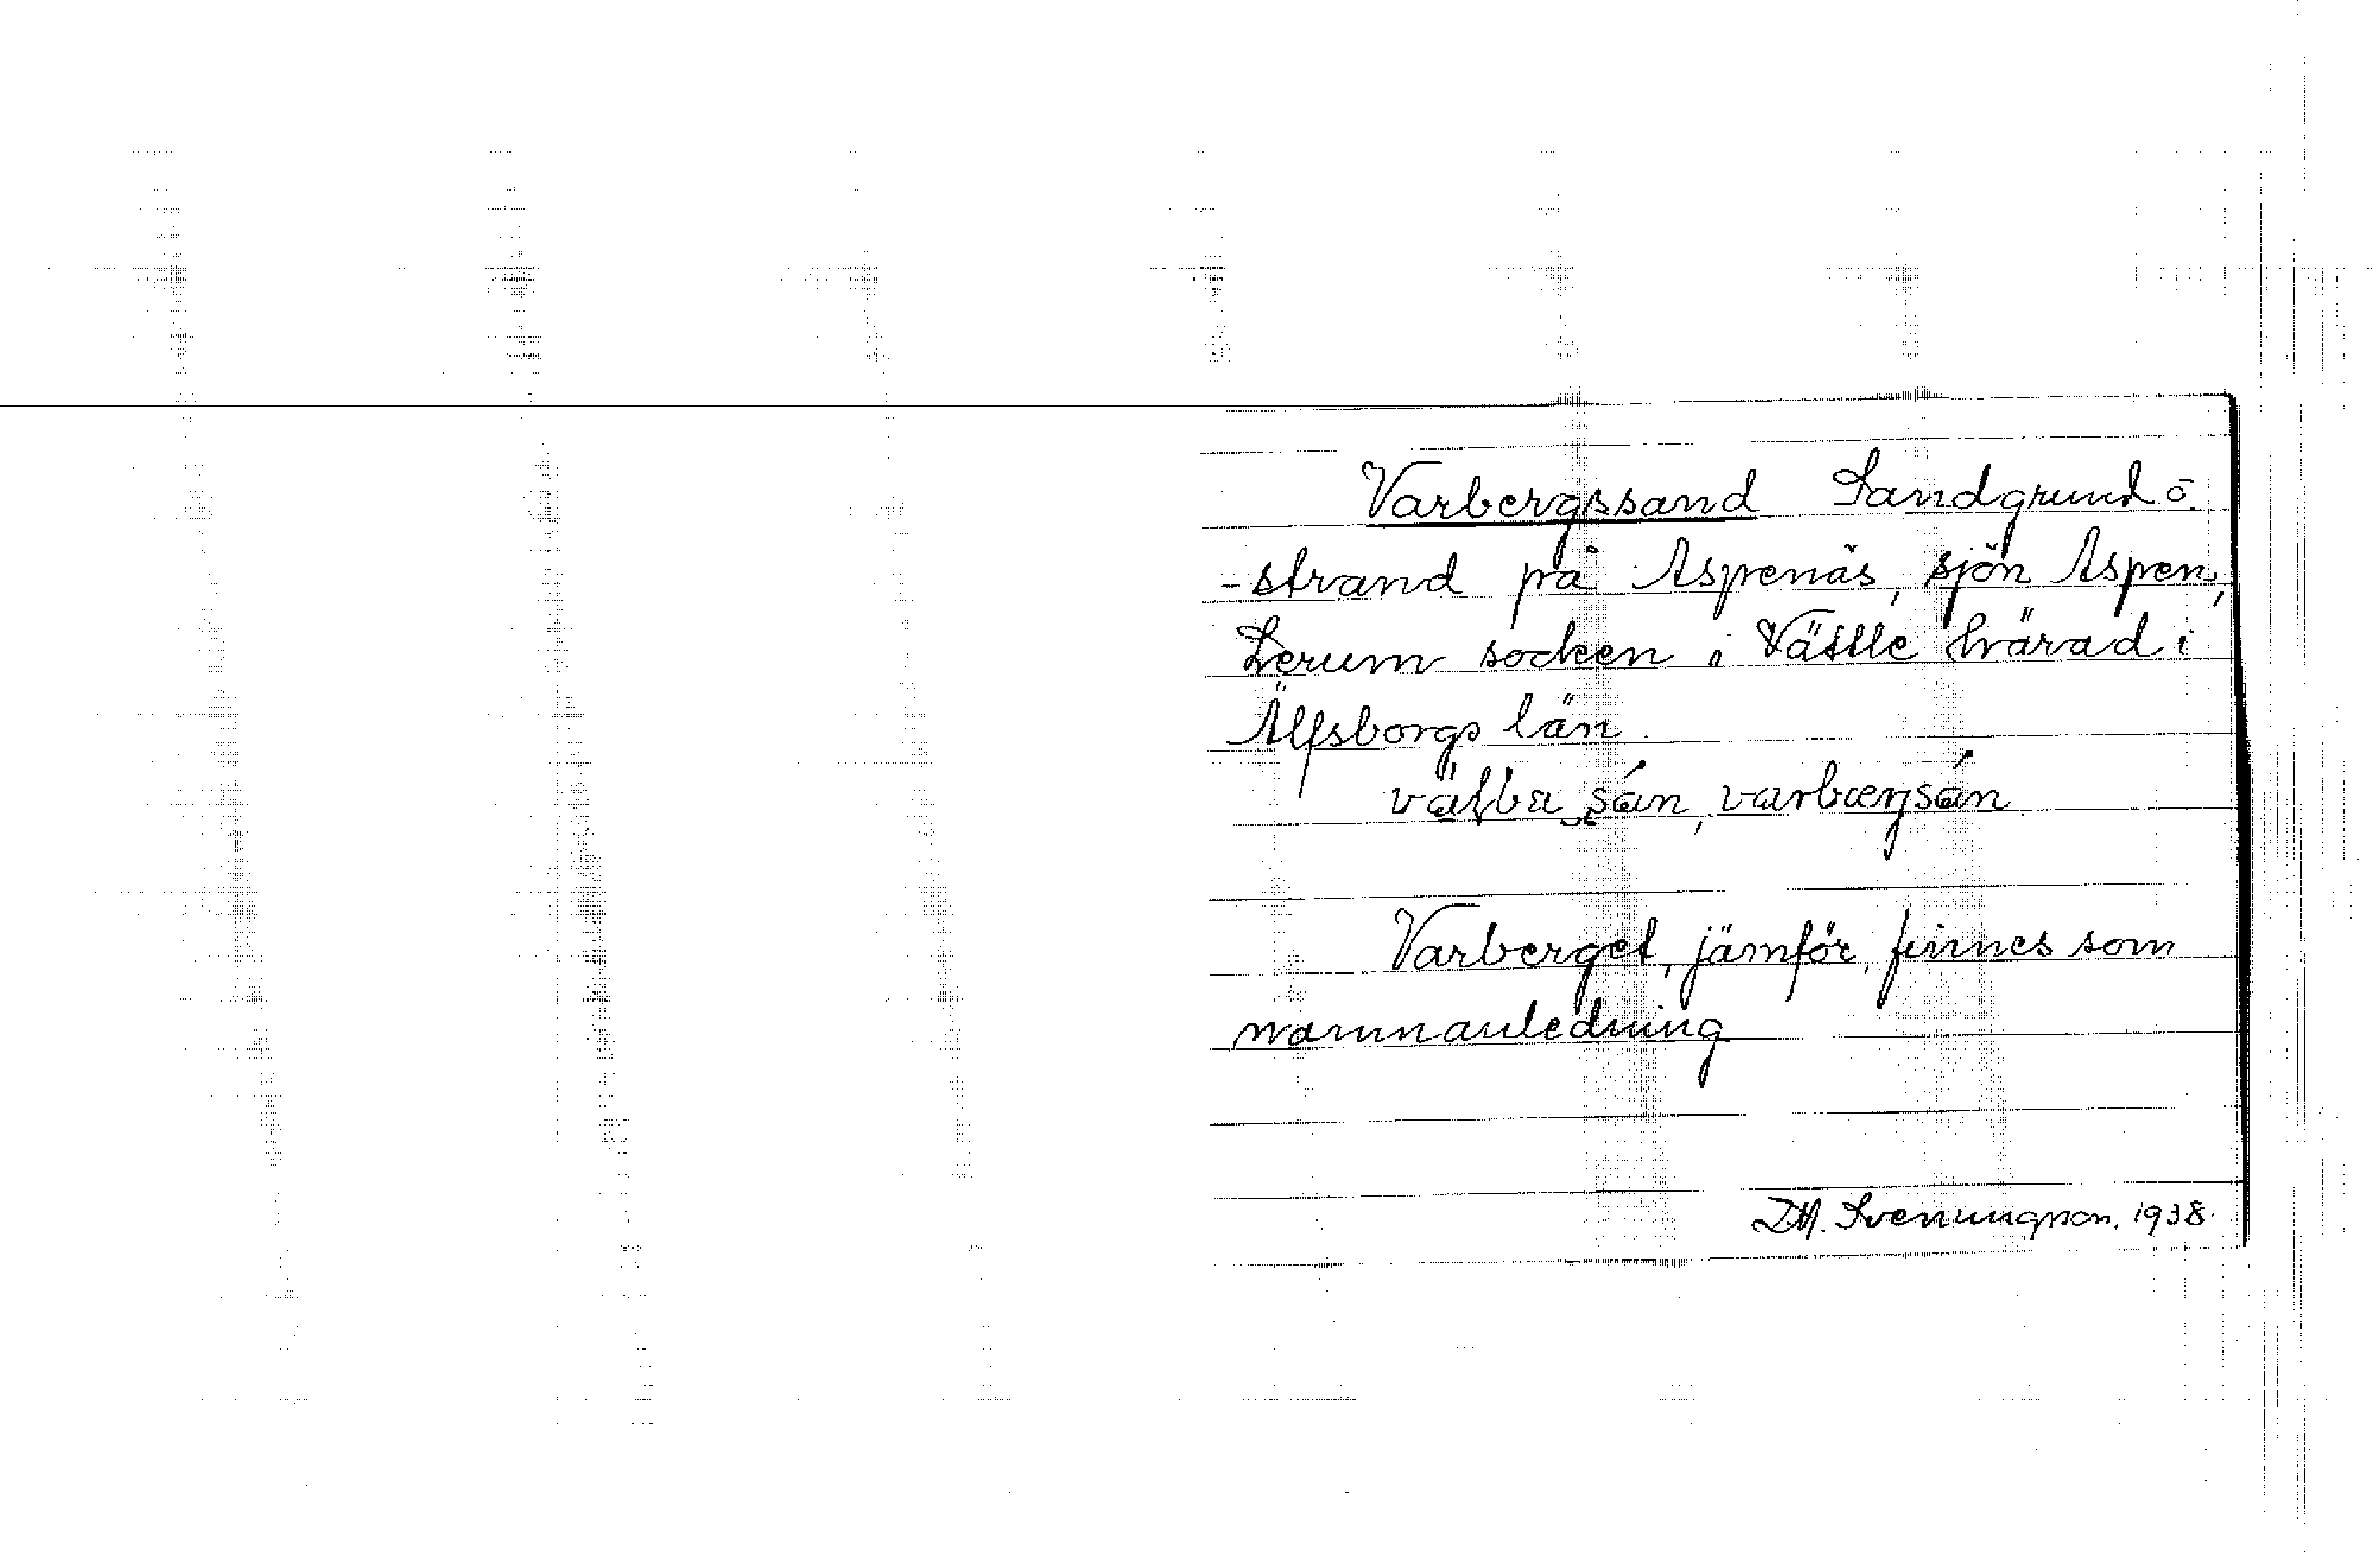 Varbergssand Sandgrund o.
-strand på Aspenäs, sjön Aspen,
Lerum socken i Vättle härad i
Älfsborgs län.
varbærjsán.
Varberget, jämför, finnes som
namnanledning
D.A. Svenungson. 1938.